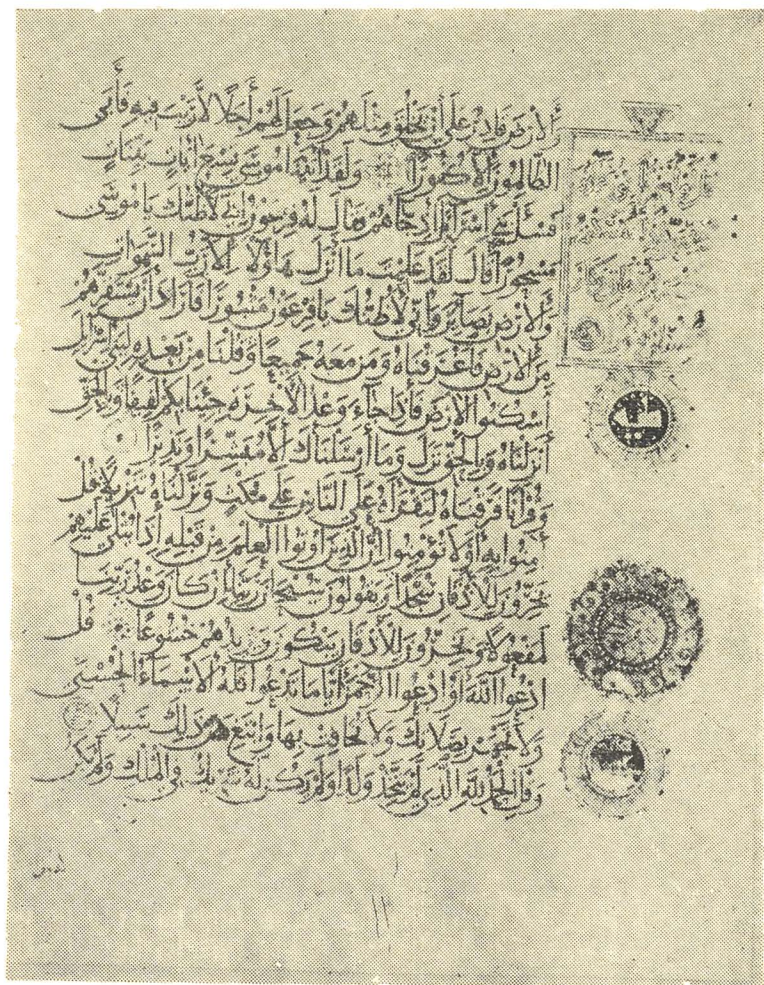 وَالْأَرْضَ قَادِرٌ عَلَى أَنْ يَخْلُقَ مِثْلَهُمْ وَجَعَلَ لَهُمْ أَجَلًا لَا رَيْبَ فِيهِ فَأَبَى
الظَّالِمُونَ إِلَّا كُفُورًا وَلَقَدْ آتَيْنَا مُوسَى تِسْعَ آيَاتٍ بَيِّنَاتٍ
فَسْئَلْ بَنِي إِسْرَائِيلَ إِذْ جَاءَهُمْ فَقَالَ لَهُ فِرْعَوْنُ إِنِّي لَأَظُنُّكَ يَا مُوسَى
مَسْحُورًا قَالَ لَقَدْ عَلِمْتَ مَا أَنْزَلَ هَاؤُلَاءِ إِلَّا رَبُّ السَّمَوَاتِ
وَالْأَرْضِ بَصَائِرَ وَإِنِّي لَأَظُنُّكَ يَا فِرْعَوْنُ مَثْبُورًا فَأَرَادَ أَنْ يَسْتَفِزَّهُمْ
مِنَ الْأَرْضِ فَأَغْرَقْنَاهُ وَمَنْ مَعَهُ جَمِيعًا وَقُلْنَا مِنْ بَعْدِهِ لِبَنِي إِسْرَائِيلَ
اسْكُنُوا الْأَرْضَ فَإِذَا جَاءَ وَعْدُ الْآخِرَةِ جِئْنَا بِكُمْ لَفِيفًا وَبِالْحَقِّ
أَنْزَلْنَاهُ وَبِالْحَقِّ نَزَلَ وَمَا أَرْسَلْنَاكَ إِلَّا مُبَشِّرًا وَنَذِيرًا
وَقُرْآنًا فَرَقْنَاهُ لِتَقْرَأَهُ عَلَى النَّاسِ عَلَى مُكْثٍ وَنَزَّلْنَاهُ تَنْزِيلًا قُلْ
آمِنُوا بِهِ أَوْ لَا تُؤْمِنُوا إِنَّ الَّذِينَ أُوتُوا الْعِلْمَ مِنْ قَبْلِهِ إِذَا يُتْلَى عَلَيْهِمْ
يَخِرُّونَ لِلْأَذْقَانِ سُجَّدًا وَيَقُولُونَ سُبْحَانَ رَبِّنَا إِنْ كَانَ وَعْدُ رَبِّنَا
لَمَفْعُولًا وَيَخِرُّونَ لِلْأَذْقَانِ يَبْكُونَ وَيَزِيدُهُمْ خُشُوعًا قُلْ
ادْعُوا اللَّهَ أَوِ ادْعُوا الرَّحْمَنَ أَيًّا مَا تَدْعُوا فَلَهُ الْأَسْمَاءُ الْحُسْنَى
وَلَا تَجْهَرْ بِصَلَاتِكَ وَلَا تُخَافِتْ بِهَا وَابْتَغِ بَيْنَ ذَلِكَ سَبِيلًا
وَقُلِ الْحَمْدُ لِلَّهِ الَّذِي لَمْ يَتَّخِذْ وَلَدًا وَلَمْ يَكُنْ لَهُ شَرِيكٌ فِي الْمُلْكِ وَلَمْ يَكُنْ